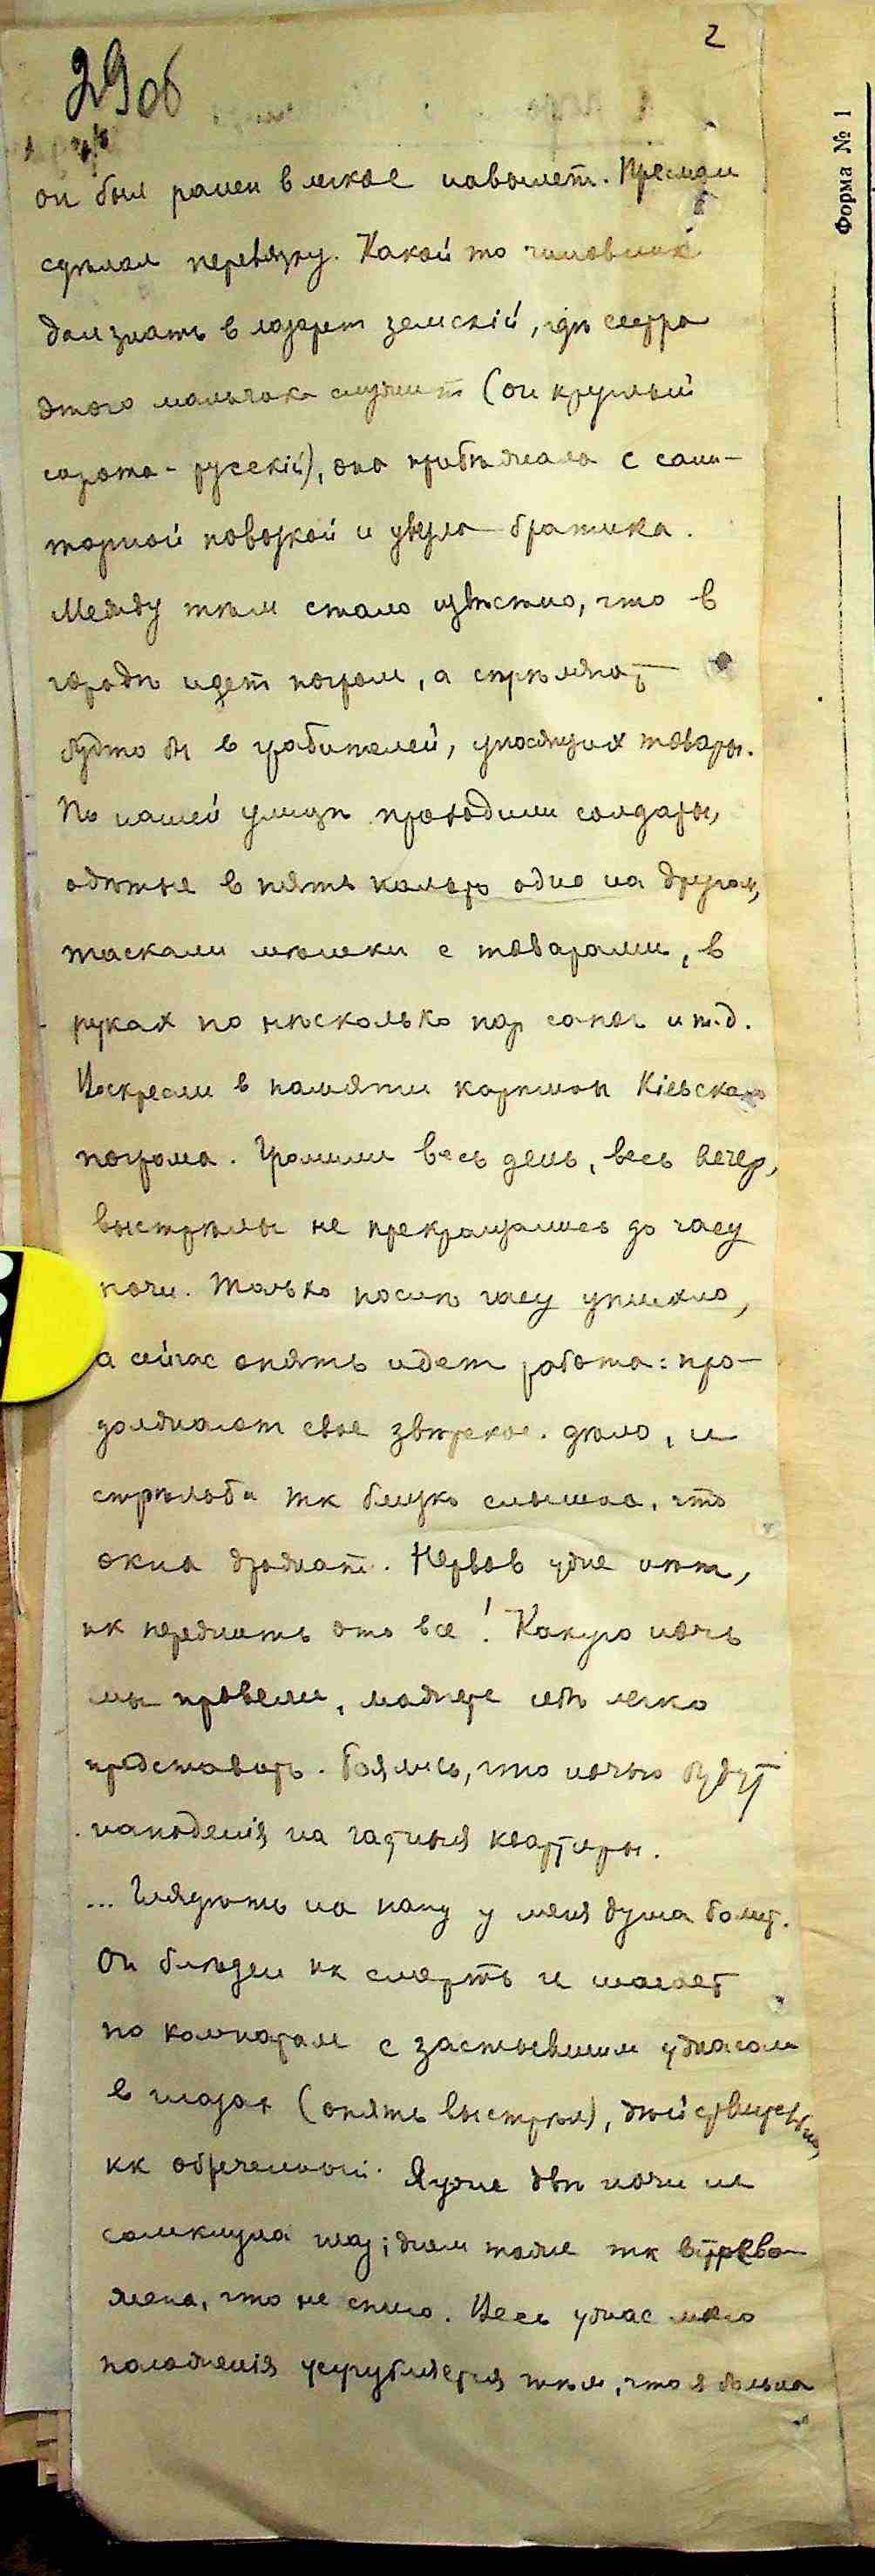 2
29 об
Форма № 1
он был ранен в легкое навылет. Прегман
сдѣлал перевязку. Какой то чиновник
дал знать в лазарет земскій, гдѣ сестра
этого мальчика служит (он круглый
сирота - русскій), она прибѣжала с сани-
тарной повозкой и увезла братика.
Между тѣм стало извѣстно, что в
городѣ идет погром, а стрѣляют
будто бы в грабителей, уносящих товары.
По нашей улицѣ проходили солдаты,
одѣтые в пять пальто одно на другом,
таскали мѣшки с товарами, в
руках по нѣсколько пар сапог и т.д.
Воскресли в памяти картины Кіевскаго
погрома. Громили весь день, весь вечер,
выстрѣлы не прекращались до часу
ночи. Только послѣ часу утихло,
а сейчас опять идет работа: про-
должают свое звѣрское дѣло, и
стрѣльба тк близко слышна, что
окна дрожат. Нервов уже нѣт,
кк пережить это все! Какую ночь
мы провели, можете себѣ легко
представить. Боялись, что ночью будут
нападенія на частныя квартиры.
... Глядѣть на папу у меня душа болит.
Он блѣден кк смерть и шагает
по комнатам с застывшим ужасом
в глазах (опять выстрѣл), дѣйствительно,
кк обреченный. Я уже двѣ ночи не
сомкнула глаз; днем тоже тк встрево-
жена, что не сплю. Весь ужас моего
положенія усугубляется тѣм, что я больна